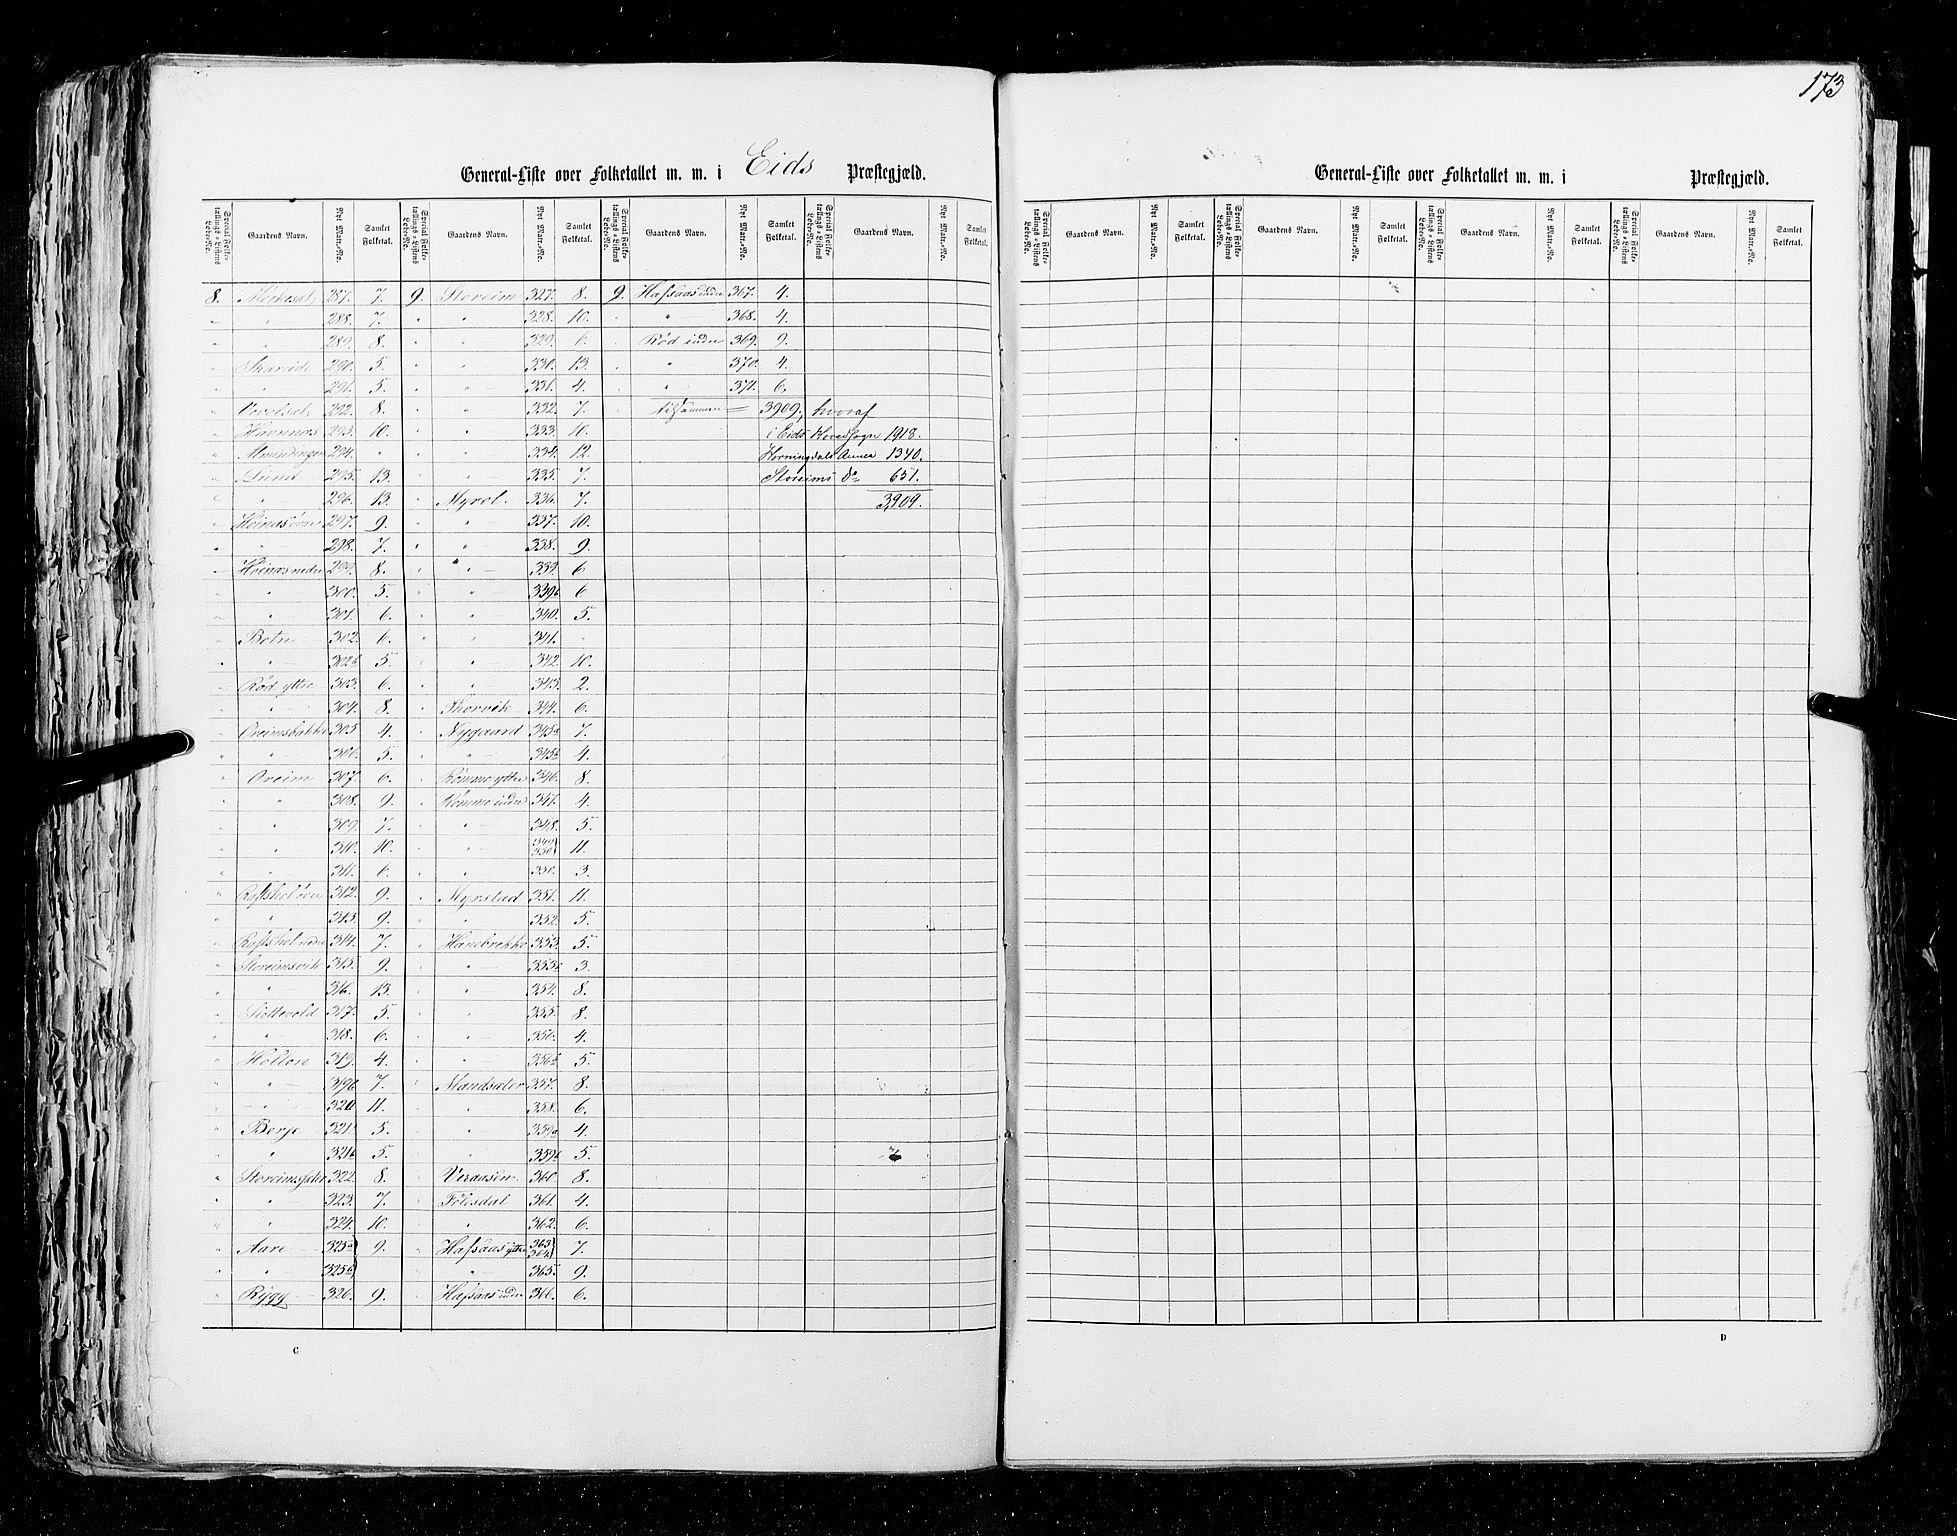 173
General-Liste over Folketallet m. m. i Eids Præstegjæld.
Special Folketællings-Listens Løbe-No. Gaardens Navn. Nyt Matr.-No. Samlet Folketal. Special Folketællings-Listens Løbe-No. Gaardens Navn. Nyt Matr.-No. Samlet Folketal. Special Folketællings-Listens Løbe-No. Gaardens Navn. Nyt Matr.-No. Samlet Folketal. Special Folketællings-Listens Løbe-No. Gaardens Navn. Nyt Matr.-No. Samlet Folketal.
8. 287. 7. 9. Storeim 327. 8. 9. Hafsaas indre 367. 4.
" " 288. 7. " " 328. 10. " " 368. 4.
" " 289. 8. " " 329. 6. " Rød indre 369. 9.
" 290. 5. " " 330. 13. " " 370. 4.
" " 291. 5. " " 331. 4. " " 371. 6.
" 292. 8. " " 332. 7. tilsammen 3909, hvoraf
" Havnnæs 293. 10. " " 333. 10. i Eids Hovedsogn 1918.
" Almindingen 294. " " " 334. 12. Horningdals Annex 1340.
" Lund 295. 13. " " 335. 7. Storeims do 651.
" " 296. 13. " Myrol 336. 7. 3,909.
" 297. 9. " " 337. 10.
" " 298. 7. " " 338. 9.
" Heinæs nedre 299. 8. " " 339. 6.
" " 300. 5. " " 339b 6
" " 301. 6. " " 340. 5.
" Botn 302. 6. " " 341. "
" " 302b 5. " " 342. 10.
" Rød ytre 303. 6. " " 343. 2.
" " 304. 8. " 344. 6.
" Oreimsbakke 305 4. " Nygaard 345a 7.
" " 306. 5. " " 345b 4.
" Oreim 307. 6. " Rømme ytre 346. 8.
" " 308. 9. " Rømme indre 347. 4.
" " 309. 7. " " 348. 5.
" " 310. 10. " " 349 350 11.
" " 311. 6. " " 350. 3.
" 312. 9. " Myrstad 351. 11.
" " 313. 9. " " 352. 5.
" 314. 7. " Hanebrekke 353. 5.
" Storeimsvik 315. 9. " " 353b 3.
" " 316. 13. " " 354. 8.
" 317. 5. " " 355. 8.
" " 318. 6. " " 356. 4.
" 319. 4. " " 356b 5.
" " 319b 7. " Mandsæter 357. 8.
" " 320 11. " " 358. 6.
" 321. 5. " " 359a 4.
" " 321b 5. " " 359b 5.
" Storeimssæter 322. 8. " Veraasen 360. 8.
" " 323. 7. " Følesdal 361. 4.
" " 324. 10. " " 362. 6.
" Aare 325a 9. " Hafsaas ytre 363 364 7.
" " 325b " " 365. 9.
" Rygg 326. 9. " Hafsaas indre 366. 6.
C
General-Liste over Folketallet m. m. i Præstegjæld.
Special Folketællings-Listens Løbe-No. Gaardens Navn. Nyt Matr.-No. Samlet Folketal. Special Folketællings-Listens Løbe-No. Gaardens Navn. Nyt Matr.-No. Samlet Folketal. Special Folketællings-Listens Løbe-No. Gaardens Navn. Nyt Matr.-No. Samlet Folketal. Special Folketællings-Listens Løbe-No. Gaardens Navn. Nyt Matr.-No. Samlet Folketal.
D